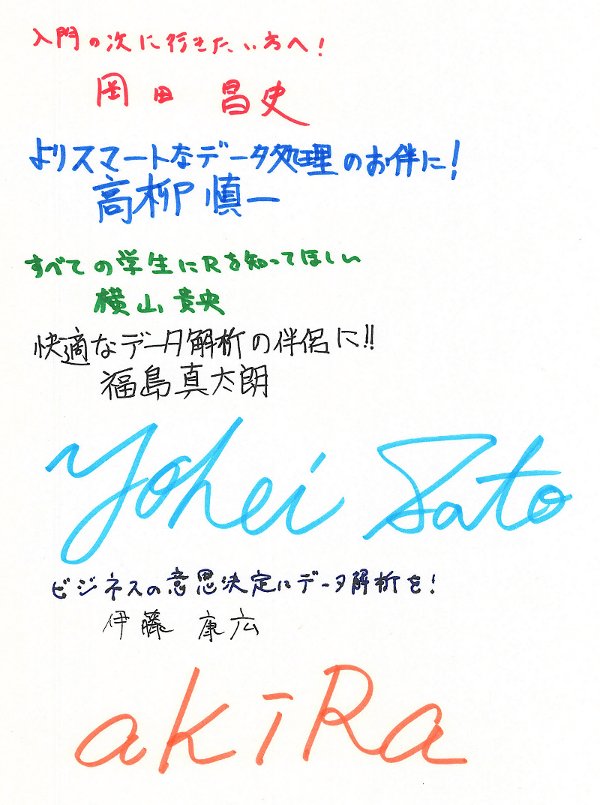 入門の次に行きたい方へ!
岡田 昌史
よりスマートなデータ処理のお伴に!
高柳慎一
すべての学生にRを知ってほしい
横山貴央
快適なデータ解析の伴侶に!!
福島真太朗
Yohei Sato
ビジネスの意思決定にデータ解析を!
伊藤 康広
akiRa